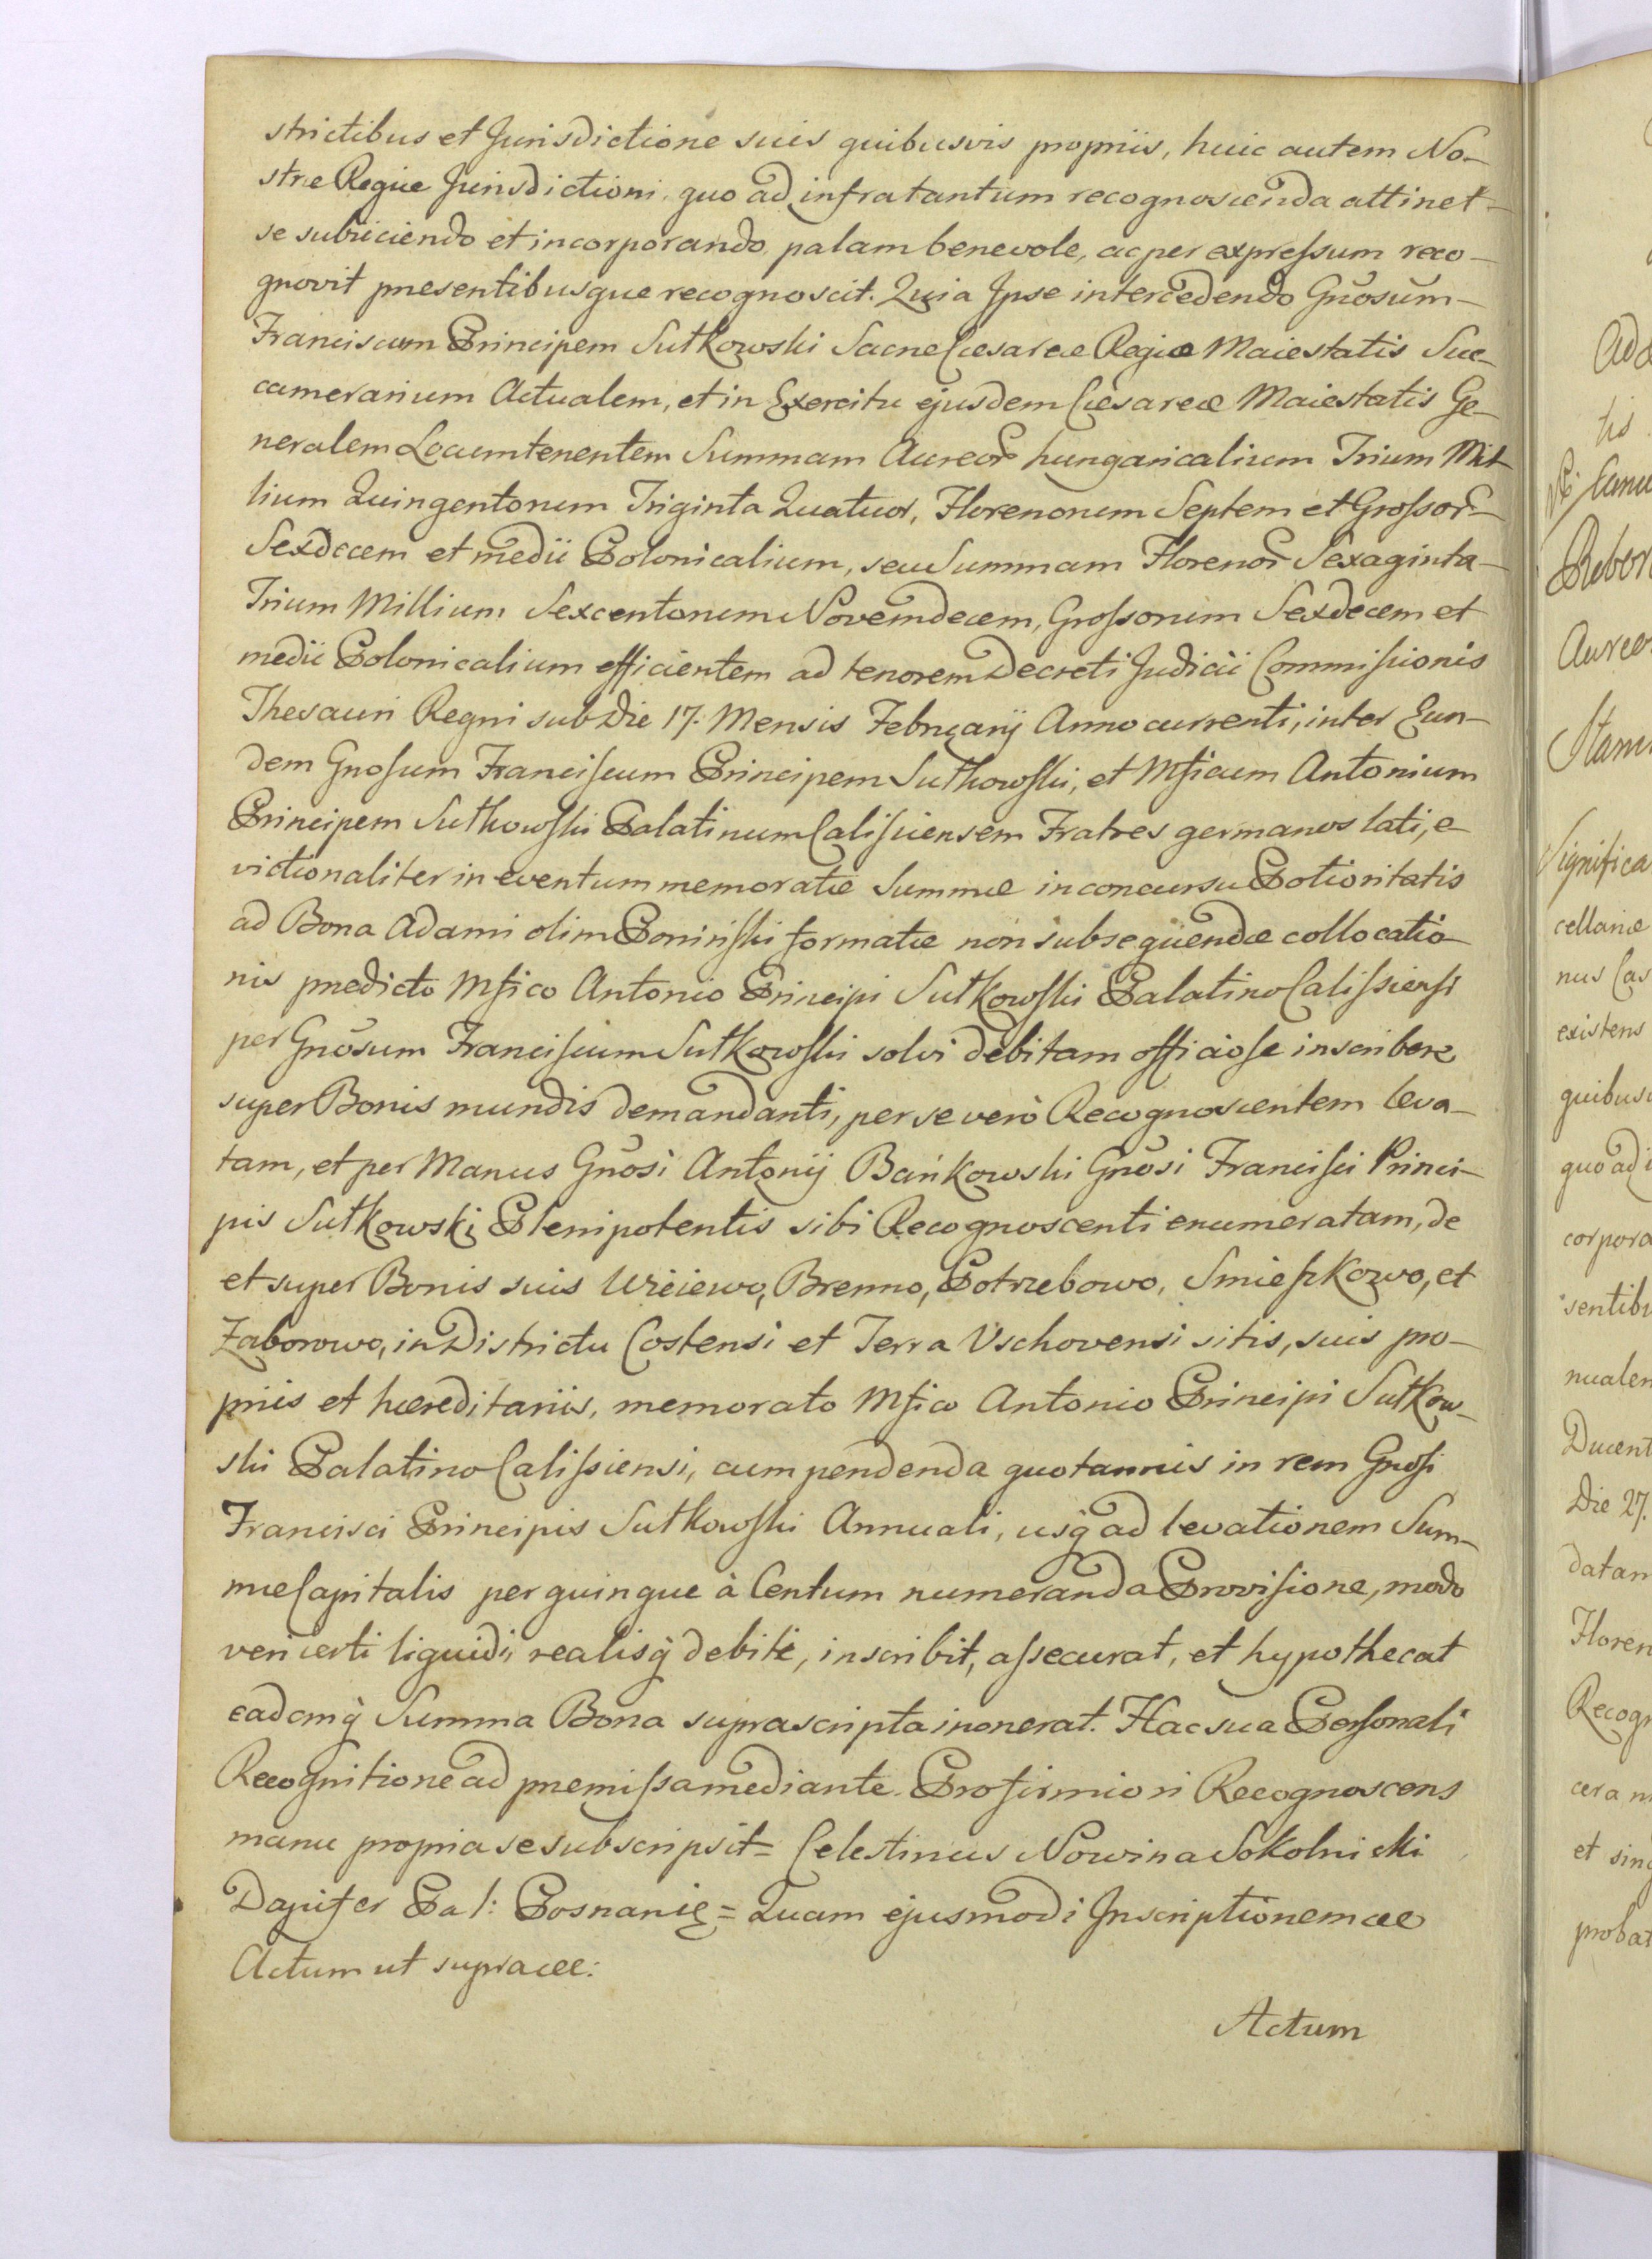 strictibus et Jurisdictione suis quibusvis propriis, huic autem No-
stræ Regiæ Jurisdictioni quo ad infra tantum recognoscenda attinet
se subiiciendo et incorporando, palam benevole, ac per expressum reco-
gnovit præsentibusque recognoscit. Quia Ipse intercedendo Gnosum
Franciscum Principem Sułkowski Sacræ Cæsareæ Regiæ Maiestatis Suc-
camerarium Actualem, et in Exercitu ejusdem Cæsareæ Maiestatis Ge-
neralem Locumtenentem Summam Aureor hungaricalium Trium Mil-
lium Quingentorum Triginta Quatuor, Florenorum Septem et Grossor
Sexdecem et medii Polonicalium, seu Summam Florenor Sexaginta
Trium Millium Sexcentorum Novemdecem, Grossorum Sexdecem et
medii Polonicalium efficientem ad tenorem Decreti Judicii Commissionis
Thesauri Regni sub Die 17. Mensis Februarij Anno currenti, inter Eun-
dem Gnosum Franciscum Principem Sułkowski, et Mficum Antonium
Principem Sułkowski Palatinum Calissiensem Fratres germanos lati, e-
victionaliter in eventum memoratæ Summæ in concursu Potioritatis
ad Bona Adami olim Poninski formatæ non subsequendæ collocatio-
nis prædicto Mfico Antonio Principi Sułkowski Palatino Calissiensi
per Gnosum Franciscum Sułkowski solvi debitam officiose inscribere
super Bonis mundis demandanti, per se verò Recognoscentem leva-
tam, et per Manus Gnosi Antonij Bańkowski Gnosi Francisci Princi-
pis Sułkowski Plenipotentis sibi Recognoscenti enumeratam, de
et super Bonis suis Wieiewo, Brenno, Potrzebowo, Smieszkowo, et
Zaborowo, in Districtu Costensi et Terra Vschovensi sitis, suis pro-
priis et hæreditariis, memorato Mfico Antonio Principi Sułkow-
ski Palatino Calissiensi, cum pendenda quotannis in rem Gnosi
Francisci Principis Sułkowski Annuali, usq ad levationem Sum-
mæ Capitalis per quinque à Centum numeranda Provisione, modo
veri certi liquidi, realisq debiti, inscribit, assecurat, et hypothecat
eademq Summa Bona suprascripta inonerat. Hac sua Personali
Recognitione ad præmissa mediante. Pro firmiori Recognoscens
manu propria se subscripsit = Celestinus Nowina Sokolnicki
Dapifer Pal: Posnanię = Quam ejusmodi Inscriptionem &c
Actum ut supra &c:
Actum